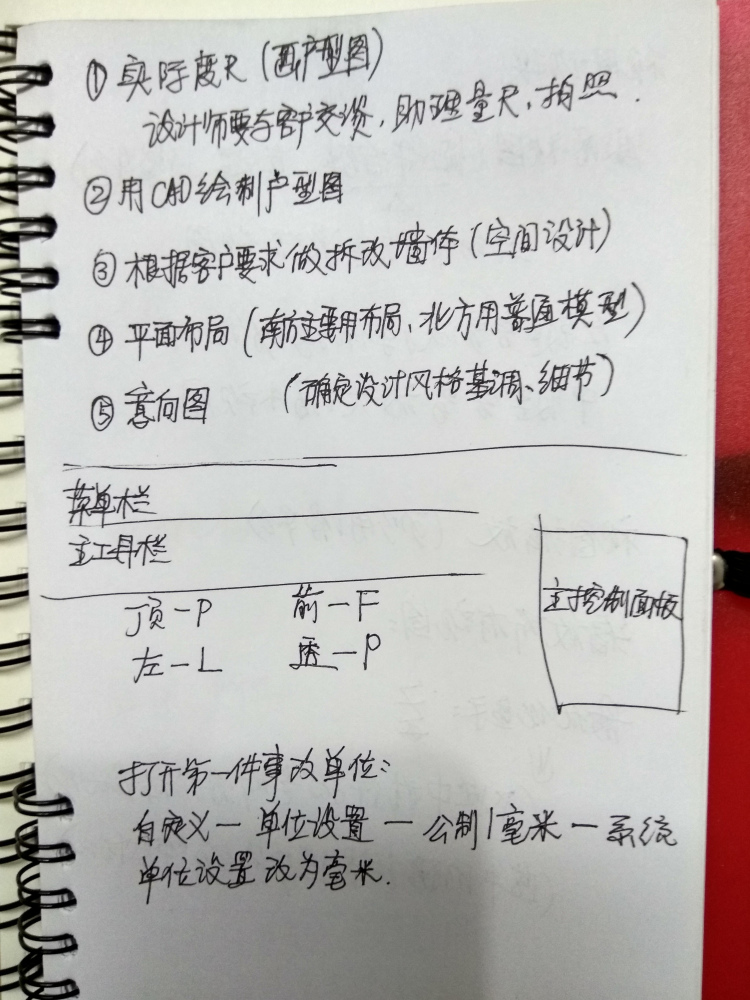 ① 实际度尺（画户型图）
设计师要与客户交谈，助理量尺，拍照.
② 用CAD绘制户型图
③ 根据客户要求做拆改墙体（空间设计）
④ 平面布局（南方主要用布局、北方用普通模型）
⑤ 意向图 （确定设计风格基调、细节）
菜单栏
主工具栏
主控制面板
顶—P 前—F
左—L 透—P
打开第一件事改单位：
自定义—单位设置—公制/毫米—系统
单位设置改为毫米.